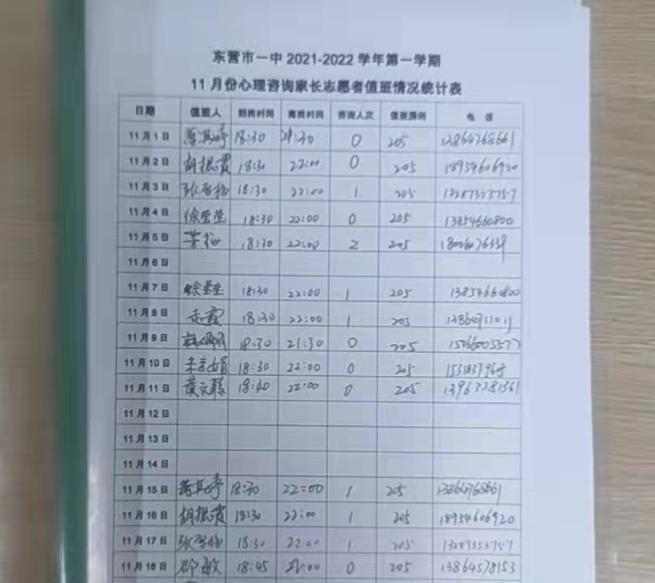 东营市一中 2021-2022 学年第一学期
11 月份心理咨询家长志愿者值班情况统计表
日期 值班人 到岗时间 离岗时间 咨询人次 值班房间 电 话
11月1日 18:30 21:30 0 205 13864768661
11月2日 胡振霞 18:30 22:00 0 205 18954606920
11月3日 18:30 22:00 1 205 13287353757
11月4日 徐莹莹 18:30 22:00 0 205 13854660800
11月5日 18:30 22:00 2 205
11月6日
11月7日 徐莹莹 18:30 22:00 1 205 13854660800
11月8日 18:30 22:00 1 205
11月9日 18:30 21:30 0 205
11月10日 18:30 22:00 0 205
11月11日 18:40 22:00 0 205
11月12日
11月13日
11月14日
11月15日 18:30 22:00 1 205 13864768661
11月16日 胡振霞 18:30 22:00 1 205 18954606920
11月17日 18:30 22:00 1 205 13287353757
11月18日 邵敏 18:45 0 205 13864578153